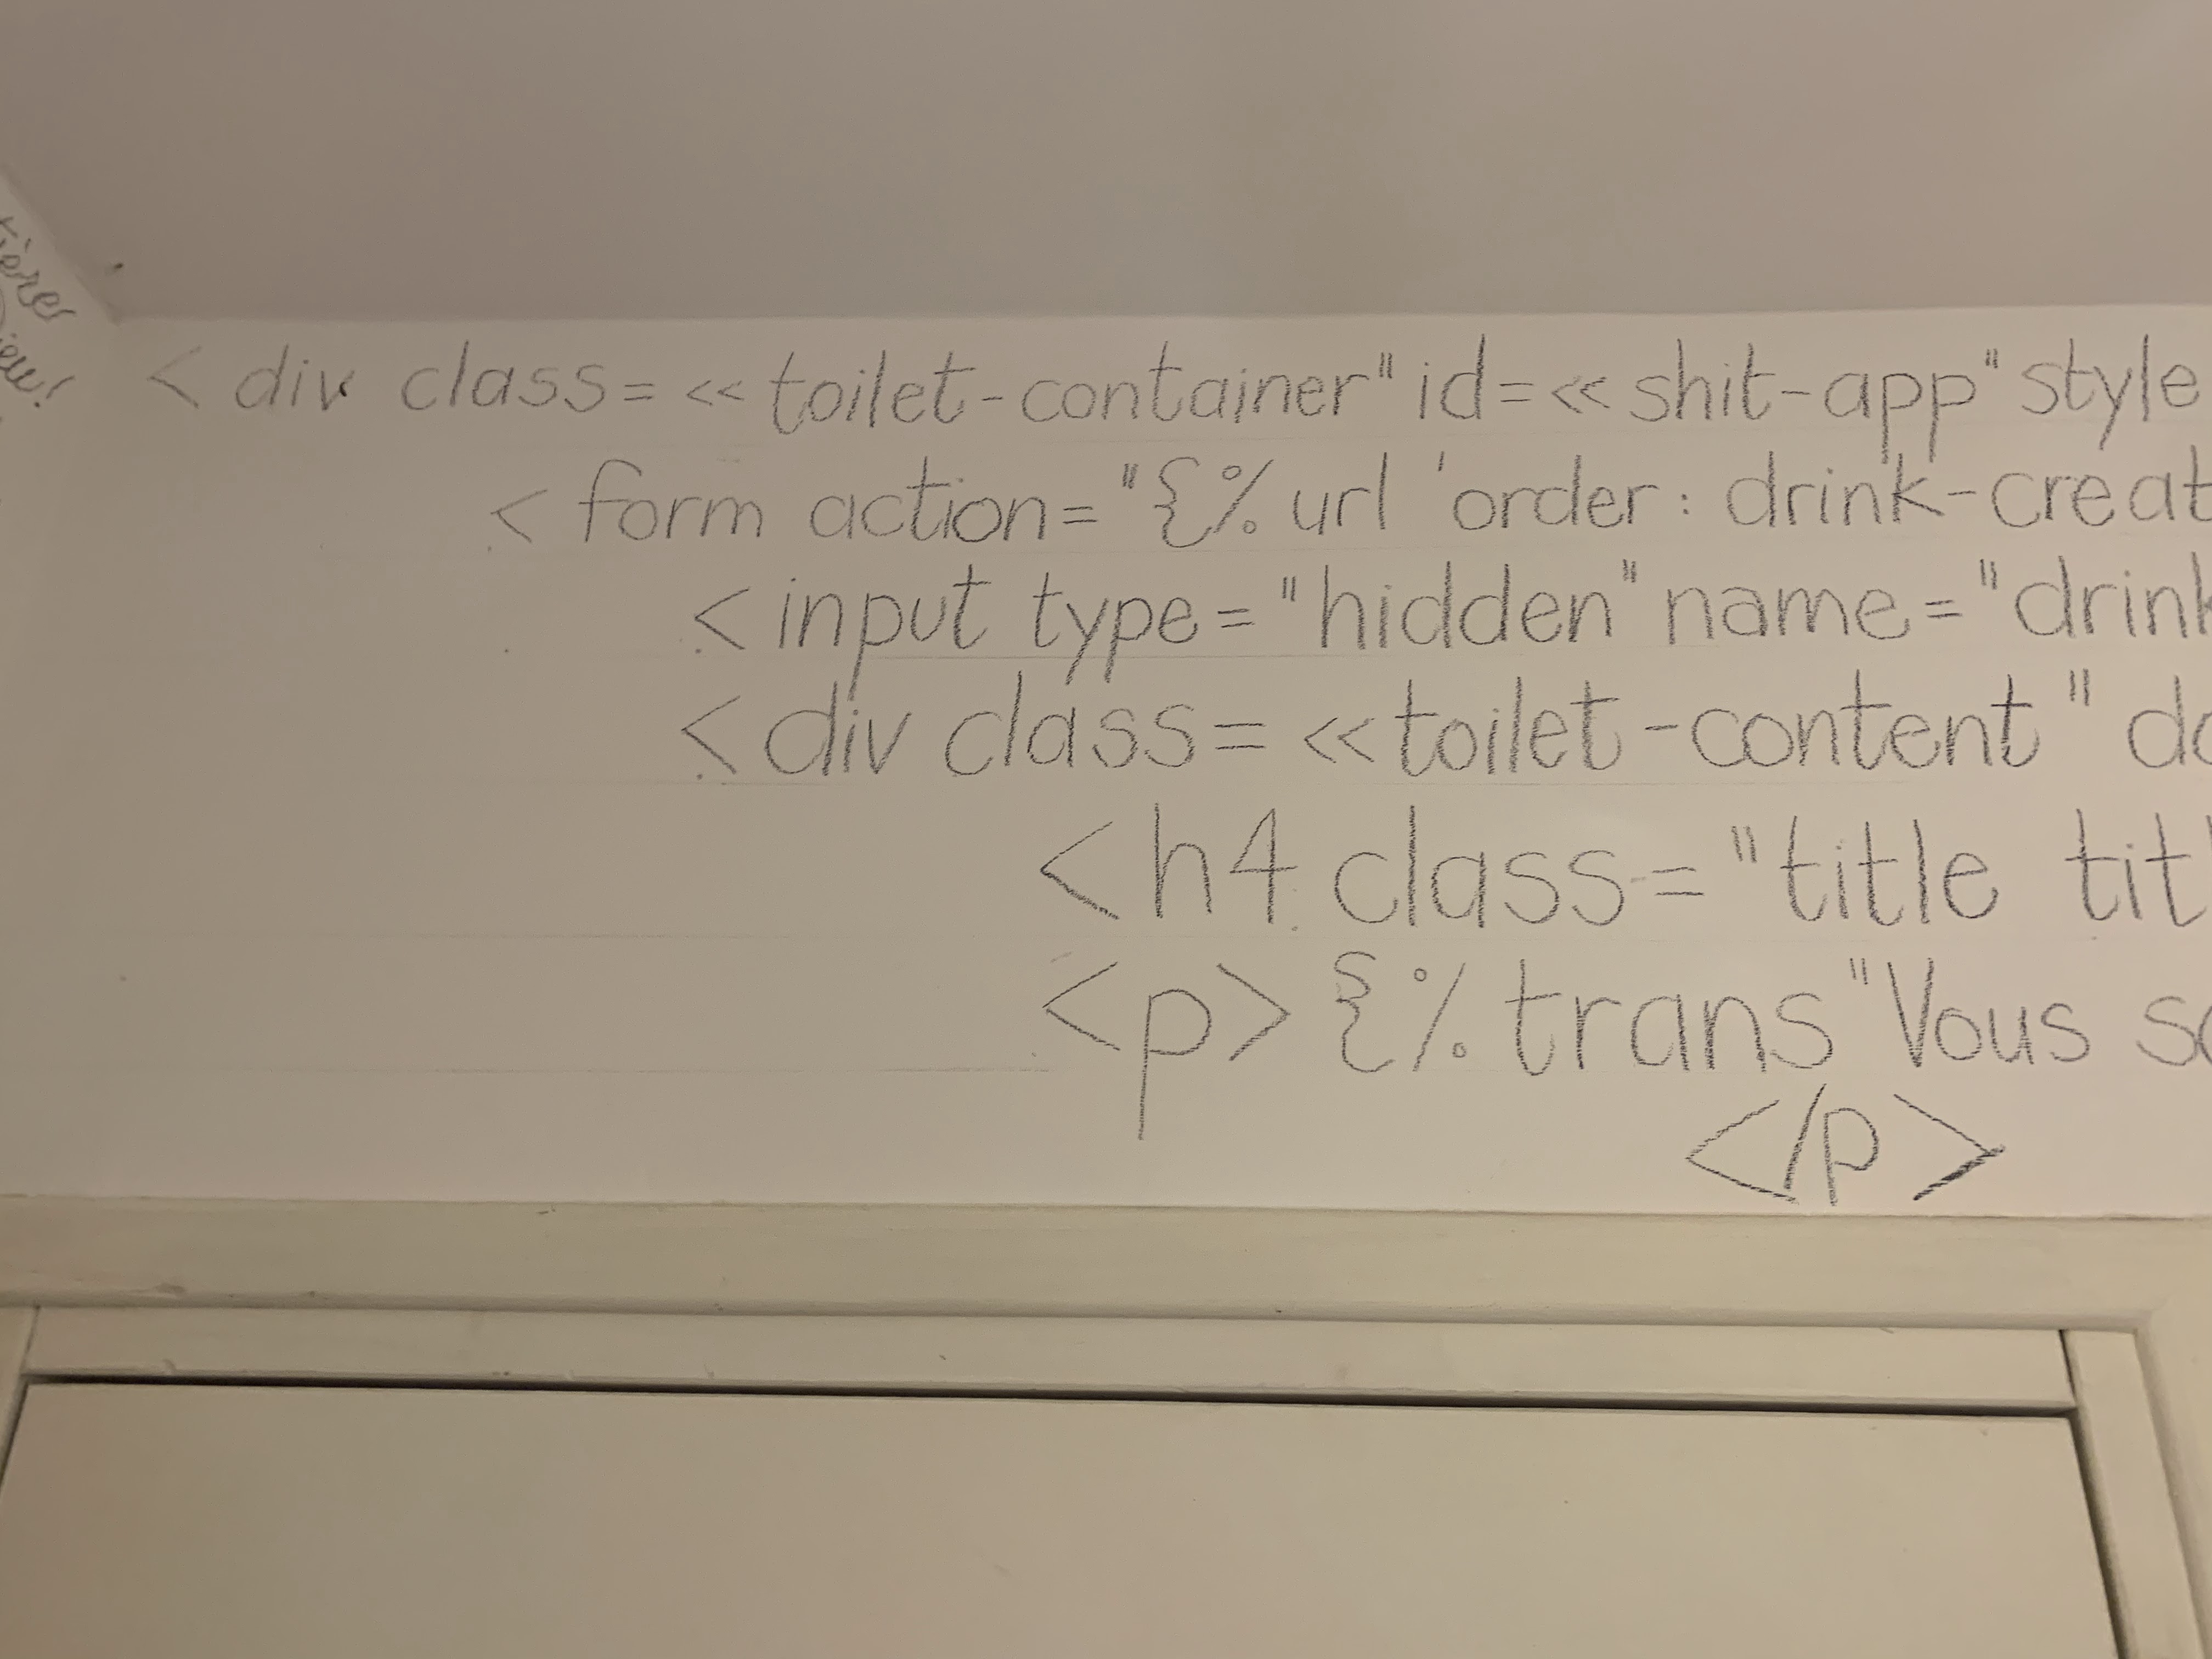 < div class= «toilet-container" id= «shit-app" style
< form action= "{% url 'order: drink-creat
< input type= "hidden" name= "drink
< div class= «toilet-content"
< h4 class= "title tit
<p> {% trans "Vous
</p>